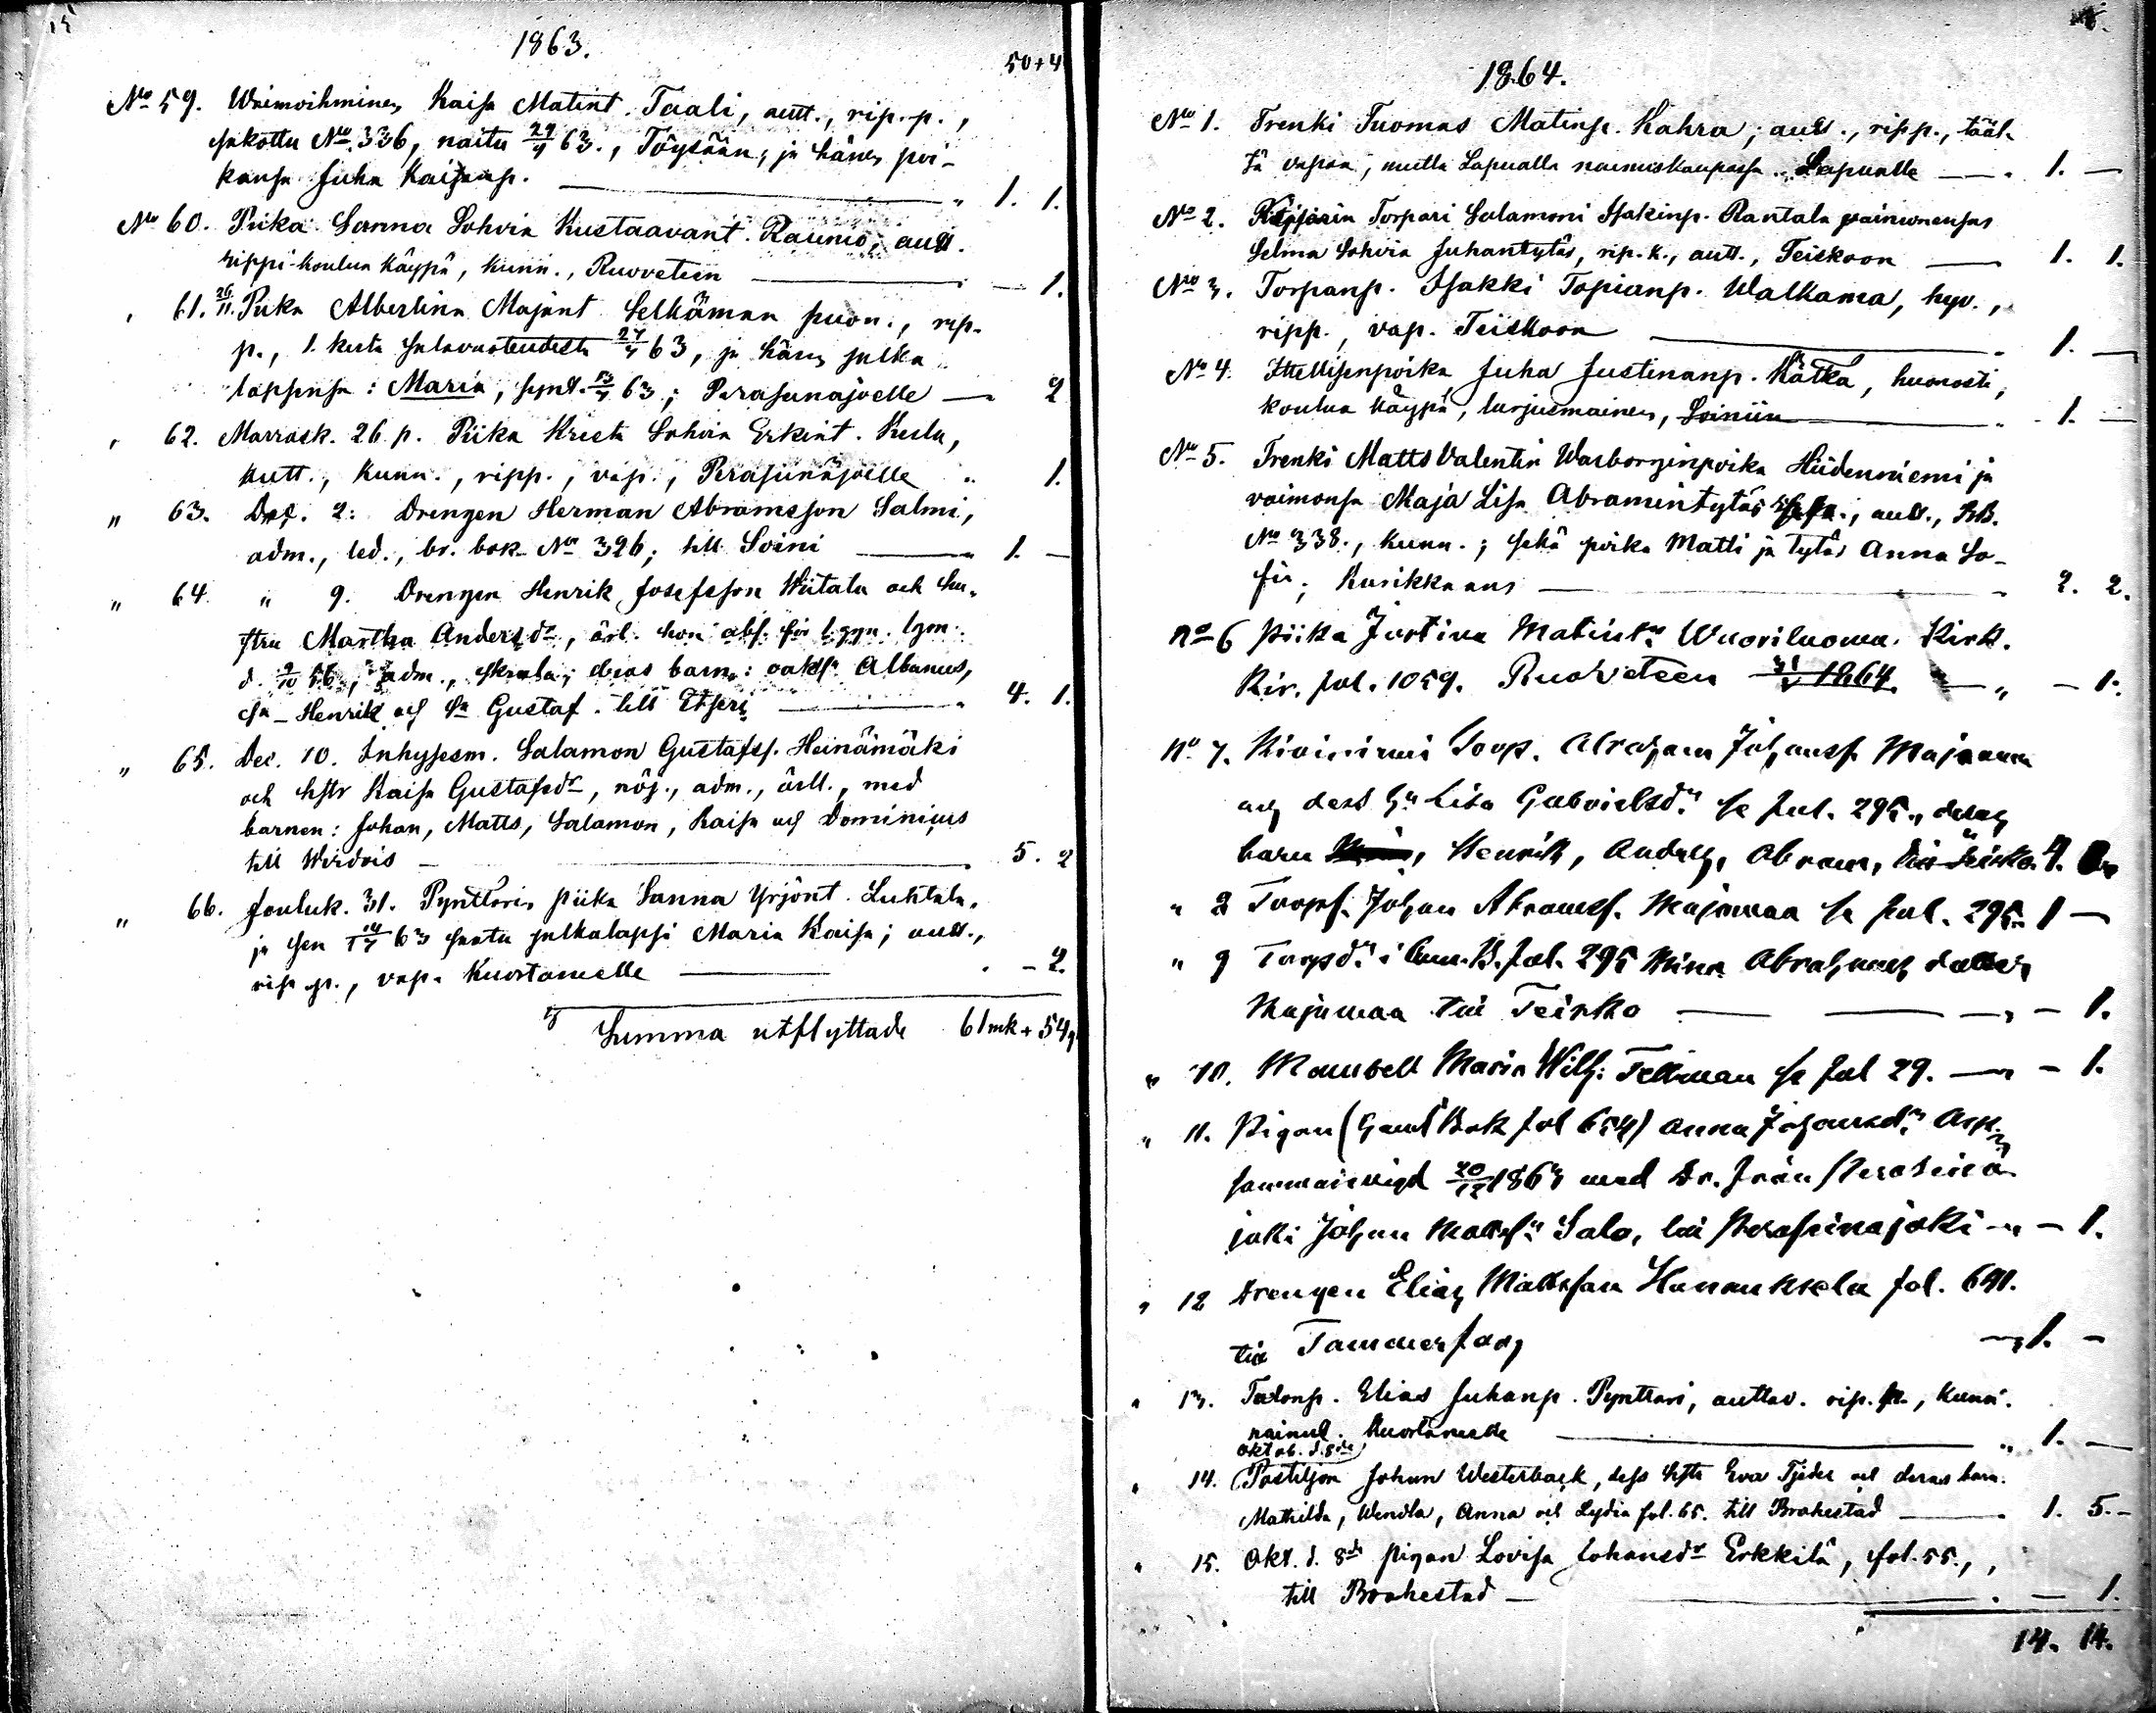 15
1863.
50+4
No 59. Waimoihminen Kaisa Matint. Taali, autt., rip. p.,
sakottu No 336, naitu 63., Töysään, ja hänen poi-
kansa Juha Kaisanp. — " 1. 1.
No 60. Piika Sanna Sohvia Kustaavant. Raunio, autt.
rippi-koulua käypä, kunn., Ruoveteen — 1.
61. 26/11. Piika Albertina Majant Selkämän puon., rip.
p., 1. kerta salavuoteudesta 63, ja hänen
lapsensa: Maria, synt. 63; Peräseinäjoelle — 2
62. Marrask. 26 p. Piika Kreeta Sohvia Erkint. Kesla,
autt., kunn., ripp., vap., Peräseinäjoelle " 1.
" 63. Dec. 2. Drengen Herman Abramsson Salmi,
adm., led., br. bok No 326; till Soini — 1. —
" 64. " 9. Drengen Henrik Josefsson Wiitala och hu-
stru Martha Andersdr, ärl. hon abs. för
d. 56, adm., deras barn: Albanus,
Henrik och Gustaf. till Etseri — " 4. 1.
" 65. Dec. 10. Inhysesm. Salamon Gustafss. Heinämäki
och hstr Kaisa Gustafsdr, nöj., adm., ärll., med
barnen: Johan, Matts, Salamon, Kaisa och Dominicus
till Wirdois — 5. 2
" 66. Jouluk. 31. Pynttärin piika Sanna Yrjönt. Luhtala,
ja sen 63 saatu Maria Kaisa; autt.,
rip. p., vap. Kuortaneelle — " — 2.
Summa utflyttade 61 mk + 54 q
1864.
No 1. Trenki Tuomas Matinp. Kahra; autt., ripp., tääl-
tä vapaa, mutta Lapualla naimiskaupassa. Lapualle — " 1. —
No 2. Torpari Salamoni Isakinp. Rantala vaimonensas
Selma Sohvia Juhantytär, rip. k., autt., Teiskoon — 1. 1.
No 3. Torpanp. Isakki Topianp. Walkama, hyv.,
ripp., vap. Teiskoon — " 1. —
No 4. Itsellisenpoika Juha Justinanp. Kätkä, huonosti,
koulua käypä, Soiniin — " 1. —
No 5. Trenki Matts Valentin Warborginpoika Hiidenniemi ja
vaimonsa Maja Lisa Abramintytär, autt., BB.
No 338., kunn.; sekä poika Matti ja tytär Anna So-
fia; Kurikkaan — " 2. 2.
No 6 Piika Justina Matintr Wuoriluoma. Kirk.
Kir. fol. 1059. Ruoveteen 1864. — " — 1.
No 7. Kiviniemi Torp. Abraham Johansf. Majamaa
och dess hu Lisa Gabrielsdr se fol. 295., deras
barn Henrik, Anders, Abram, till Teisko. 4.
" 8 Torpf. Johan Abramsf. Majamaa se fol. 295. 1 —
" 9 Torpdr i Com. B. fol. 295 Mina Abrahams dotter
Majamaa till Teisko — — " — 1.
" 10. Mamsell Maria Wilh: Tellman se fol 29. — " — 1.
" 11. Pigan (Gaml Bok fol 654) Anna Johansdr
sammanvigd 20/12 1863 med Dr. från Peraseinä
joki Johan Mattsf. Salo, till Peraseinajoki — " — 1.
" 12 Drengen Elias Mattsson Hanuksela fol. 691.
till Tammerfors — " 1. —
" 13. Talonp. Elias Juhanp. Pynttäri, auttav. rip. p., kunn.
nainut. Kuortaneelle — " 1. —
Oktob. d. 8de
" 14. Postiljon Johan Westerback, dess hstr Eva Tjeder och deras barn
Mathilda, Wendla, Anna och Lydia fol. 65. till Brahestad — 1. 5. —
" 15. Okt. d. 8de pigan Lovisa Johansdr Erkkilä, fol. 55.,
till Brahestad — " — 1.
14. 14.